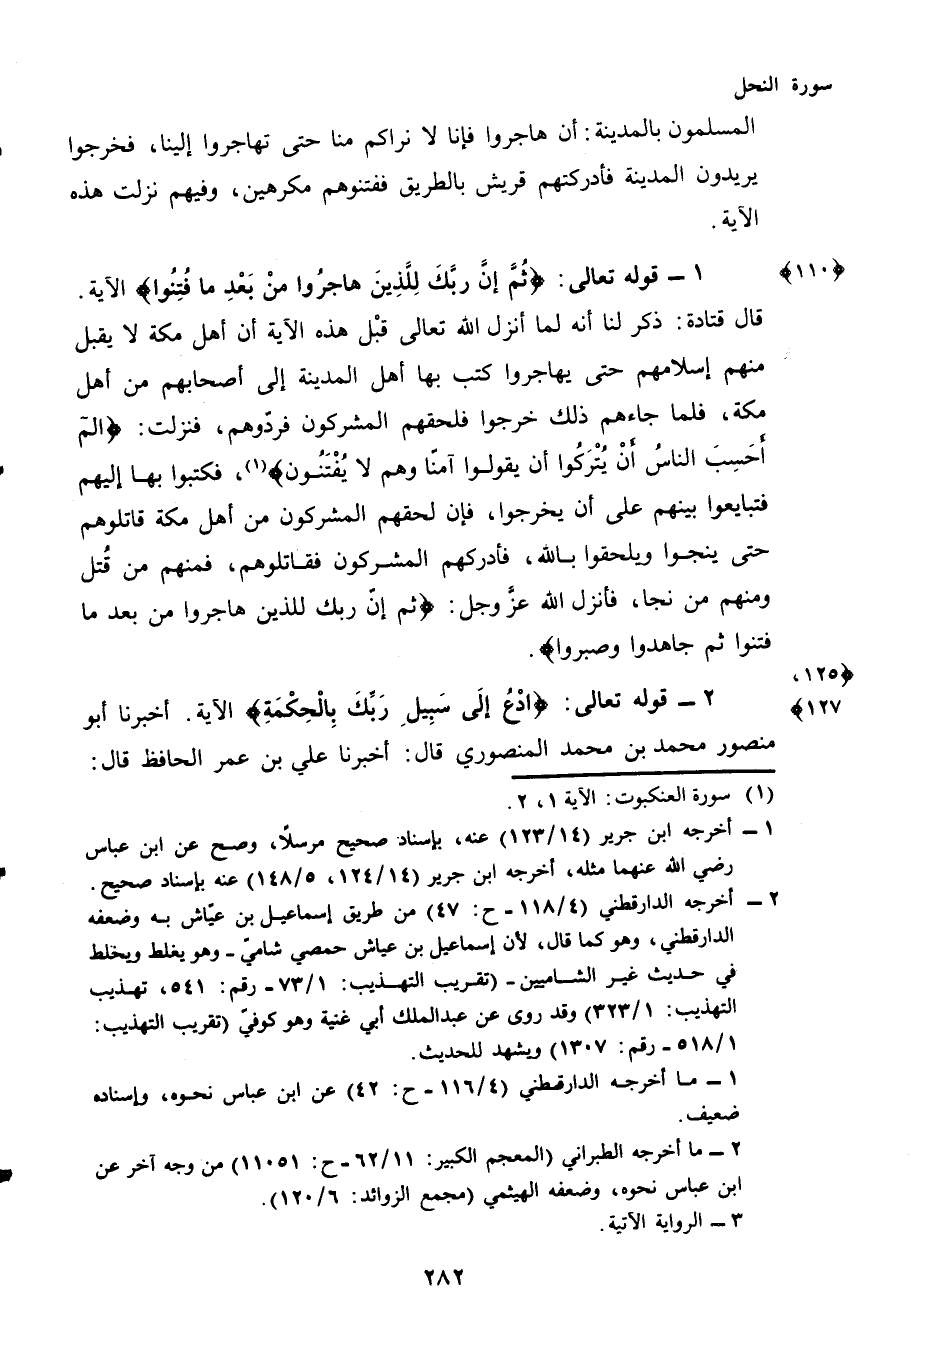 سورة النحل
المسلمون بالمدينة: أن هاجروا فإنا لا نراكم منا حتى تهاجروا إلينا، فخرجوا
يريدون المدينة فأدركتهم قريش بالطريق ففتنوهم مكرهين، وفيهم نزلت هذه
الآية.
﴿١١٠﴾ ١ ـ قوله تعالى: ﴿ثُمَّ إنَّ ربَّكَ لِلَّذِينَ هاجرُوا منْ بَعْدِ ما فُتِنُوا﴾ الآية.
قال قتادة: ذكر لنا أنه لما أنزل الله تعالى قبْل هذه الآية أن أهل مكة لا يقبل
منهم إسلامهم حتى يهاجروا كتب بها أهل المدينة إلى أصحابهم من أهل
مكة، فلما جاءهم ذلك خرجوا فلحقهم المشركون فردّوهم، فنزلت: ﴿الٓمٓ
أَحَسِبَ الناسُ أَنْ يُتْرَكُوا أن يقولوا آمنّا وهم لا يُفْتَنُون﴾(١)، فكتبوا بها إليهم
فتبايعوا بينهم على أن يخرجوا، فإن لحقهم المشركون من أهل مكة قاتلوهم
حتى ينجوا ويلحقوا بالله، فأدركهم المشركون فقاتلوهم، فمنهم من قُتل
ومنهم من نجا، فأنزل الله عزَّ وجل: ﴿ثم إنّ ربك للذين هاجروا من بعد ما
فتنوا ثم جاهدوا وصبروا﴾.
﴿١٢٥،
١٢٧﴾ ٢ ـ قوله تعالى: ﴿ادْعُ إلَى سَبِيلِ رَبِّكَ بِالْحِكْمَةِ﴾ الآية. أخبرنا أبو
منصور محمد بن محمد المنصوري قال: أخبرنا علي بن عمر الحافظ قال:
(١) سورة العنكبوت: الآية ١، ٢.
١ ـ أخرجه ابن جرير (١٢٣/١٤) عنه، بإسناد صحيح مرسلًا، وصح عن ابن عباس
رضي الله عنهما مثله، أخرجه ابن جرير (١٢٤/١٤، ١٤٨/٥) عنه بإسناد صحيح.
٢ ـ أخرجه الدارقطني (١١٨/٤ ـ ح: ٤٧) من طريق إسماعيل بن عيّاش به وضعفه
الدارقطني، وهو كما قال، لأن إسماعيل بن عياش حمصي شاميّ ـ وهو يغلط ويخلط
في حديث غير الشاميين ـ (تقريب التهذيب: ٧٣/١ ـ رقم: ٥٤١، تهذيب
التهذيب: ٣٢٣/١) وقد روى عن عبدالملك أبي غنية وهو كوفيّ (تقريب التهذيب:
٥١٨/١ ـ رقم: ١٣٠٧) ويشهد للحديث.
١ ـ ما أخرجه الدارقطني (١١٦/٤ ـ ح: ٤٢) عن ابن عباس نحوه، وإسناده
ضعيف.
٢ ـ ما أخرجه الطبراني (المعجم الكبير: ٦٢/١١ ـ ح: ١١٠٥١) من وجه آخر عن
ابن عباس نحوه، وضعفه الهيثمي (مجمع الزوائد: ١٢٠/٦).
٣ ـ الرواية الآتية.
٢٨٢